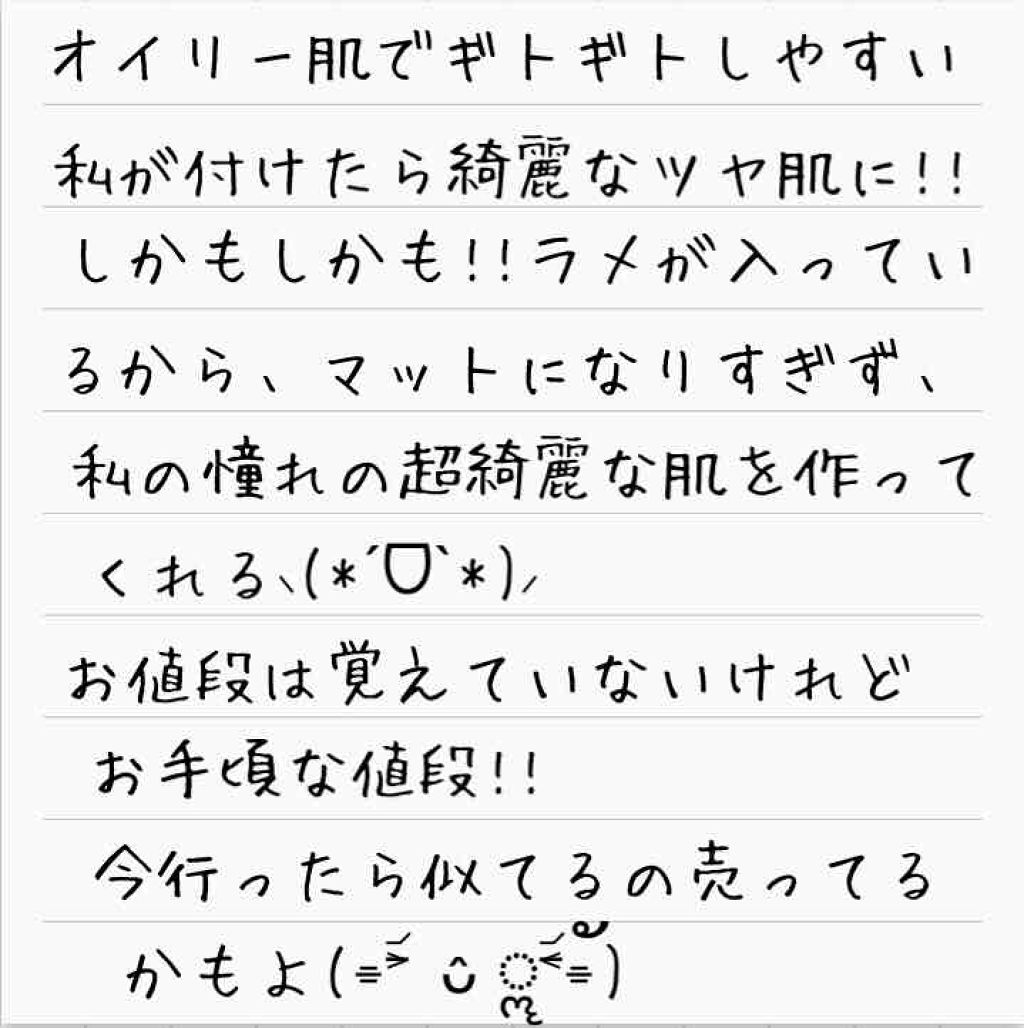 オイリー肌でギトギトしやすい
私が付けたら綺麗なツヤ肌に!!
しかもしかも!!ラメが入ってい
るから、マットになりすぎず、
私の憧れの超綺麗な肌を作って
くれる、(*´ᗜ`*)ノ
お値段は覚えていないけれど
お手頃な値段!!
今行ったら似てるの売ってる
かもよ